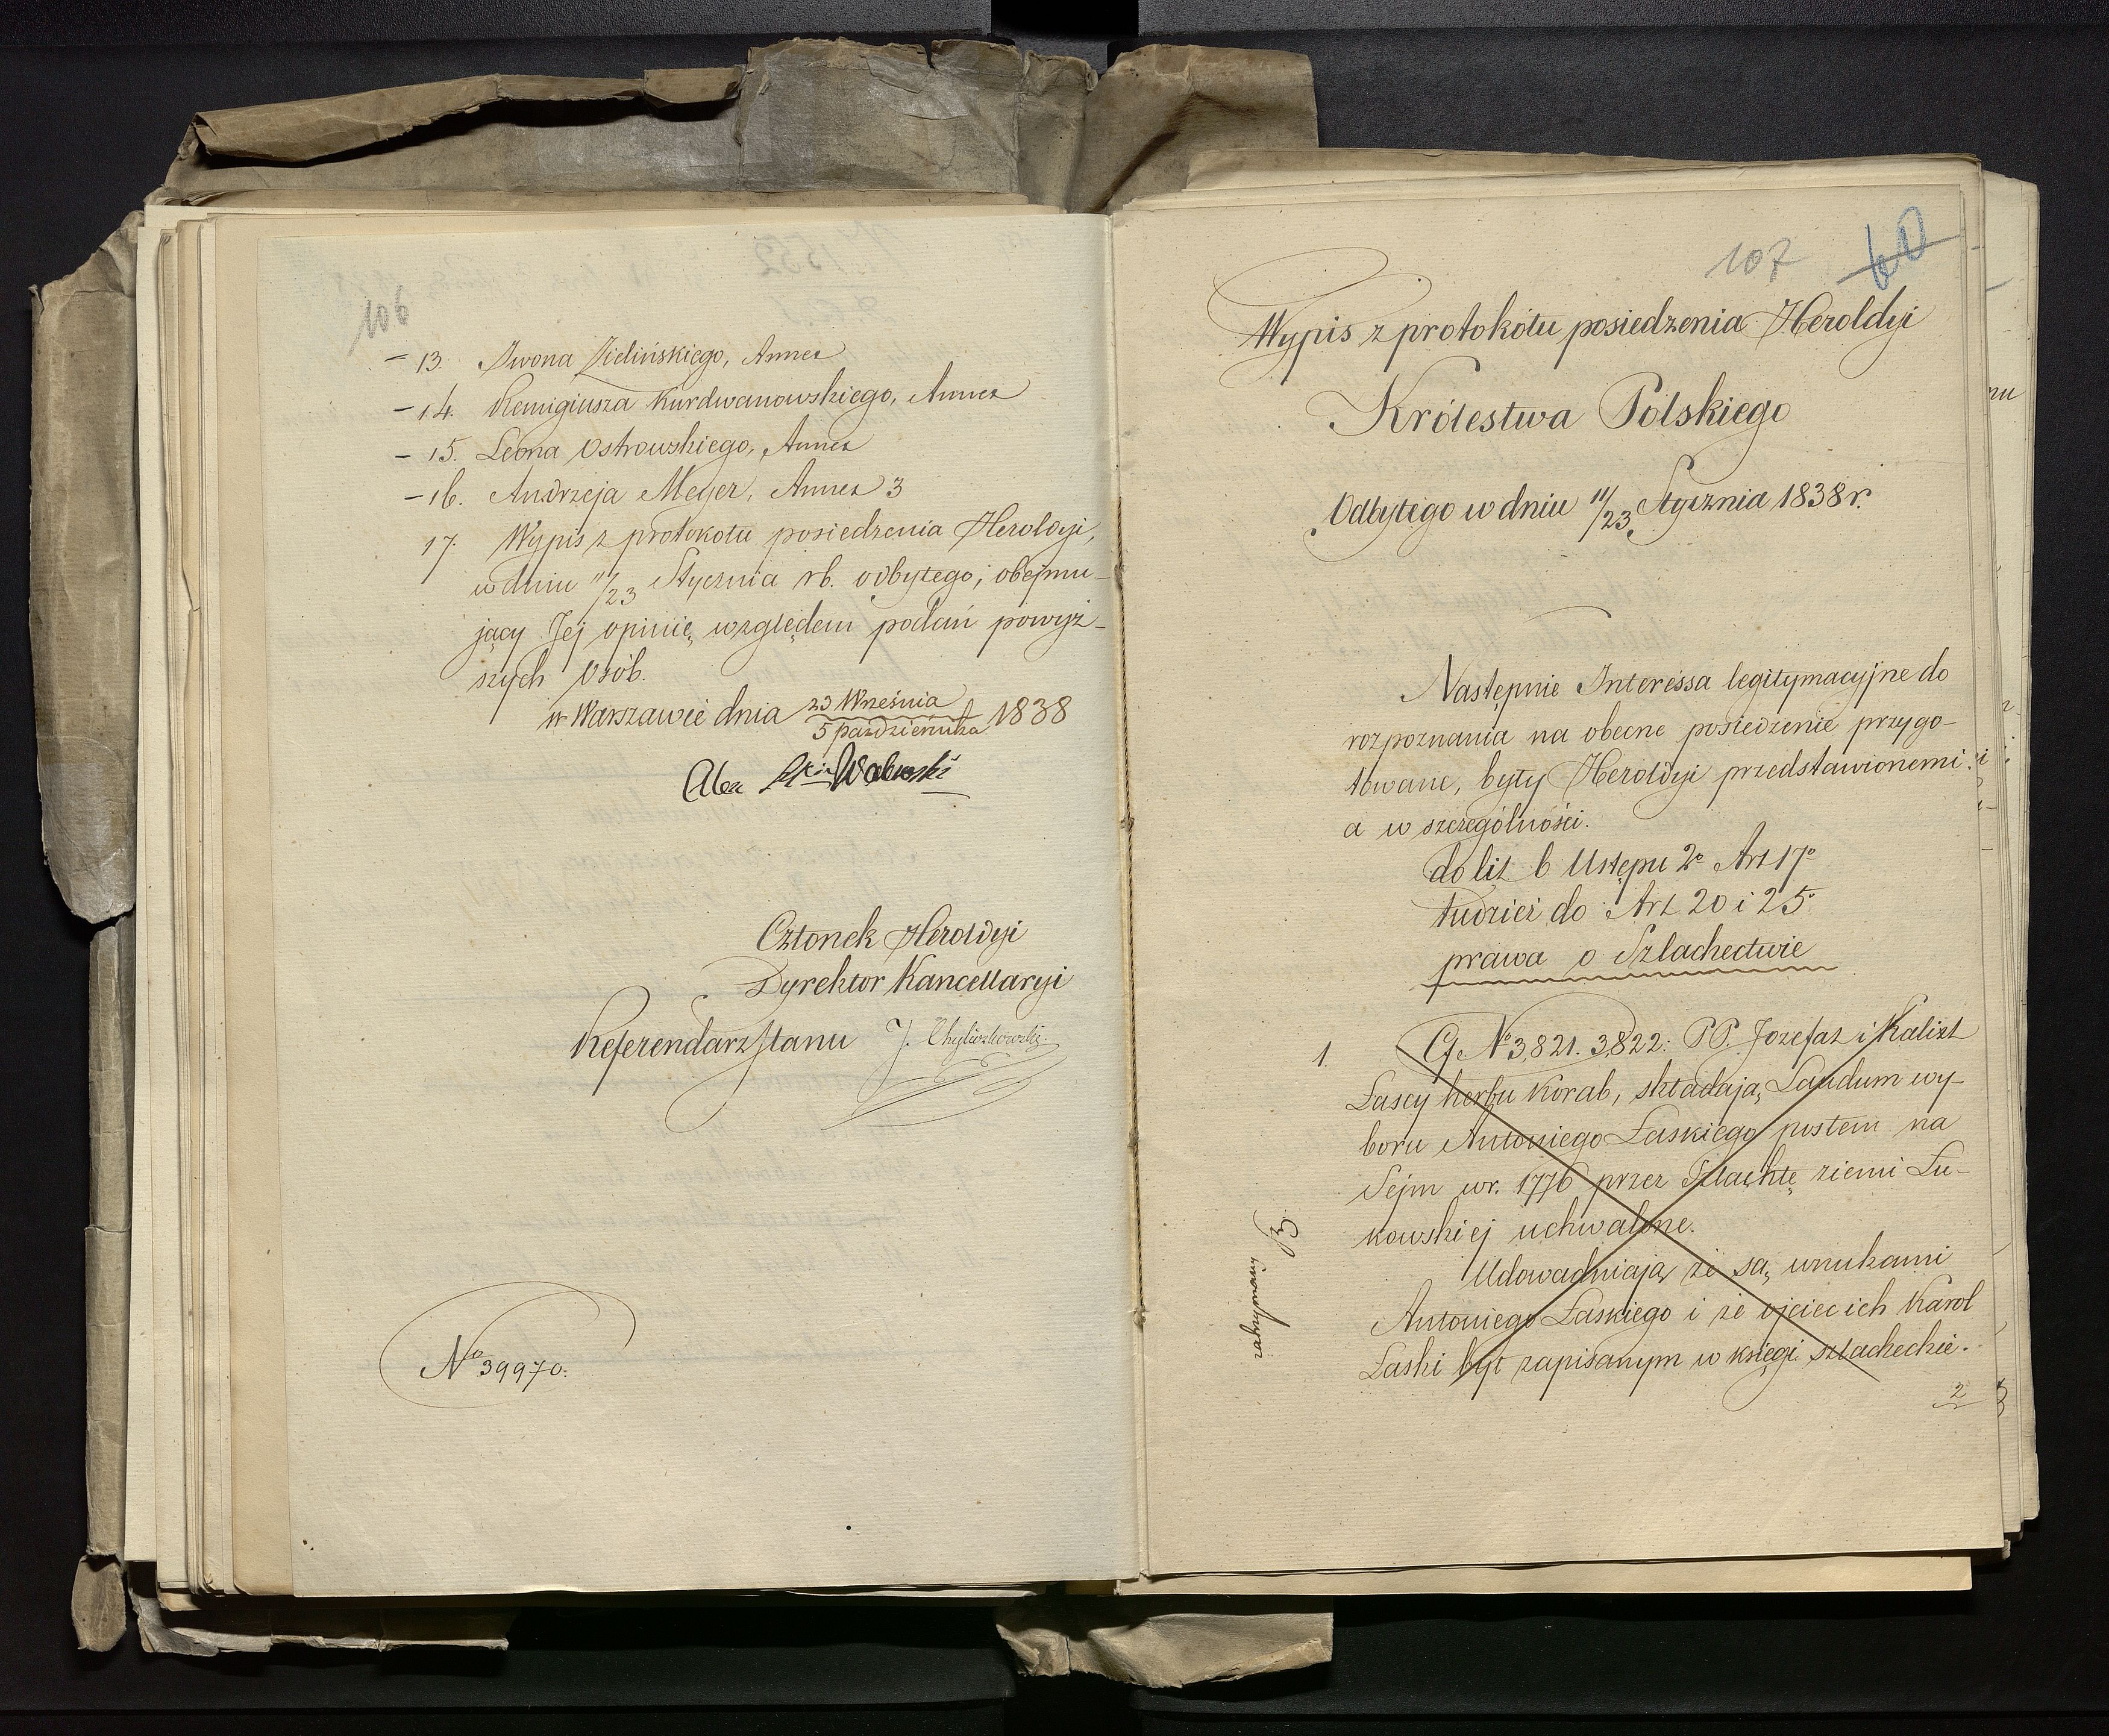 106
– 13. Iwona Zielińskiego, Annex
– 14. Remigiusza Kurdwanowskiego, Annex
– 15. Leona Ostrowskiego, Annex
– 16. Andrzeja Meyer, Annex 3
17. Wypis z protokółu posiedzenia Heroldyi,
w dniu 11/23 Stycznia rb. odbytego; obejmu-
jący Jej opinię względem podań powyż-
szych Osób.
w Warszawie dnia 23 Września / 5 października 1838
Alex Walewski
Członek Heroldyi
Dyrektor Kancellaryi
Referendarz Stanu J. Chyliczkowski
No 39970.
107 60
Wypis z protokółu posiedzenia Heroldyi
Królestwa Polskiego
Odbytego w dniu 11/23 Stycznia 1838 r.
Następnie Interessa legitymacyjne do
rozpoznania na obecne posiedzenie przygo-
towane, były Heroldyi przedstawionemi
a w szczególności.
do lit b Ustępu 2o Art 17o
tudzież do Art 20 i 25o
prawa o Szlachectwie
1. Cf No 3,821. 3,822: PP. Jozefat i Kalixt
Łascy herbu Korab, składają Laudum wy-
boru Antoniego Łaskiego posłem na
Sejm w r. 1776 przez Szlachtę ziemi Łu-
kowskiej uchwalone.
Udowadniają że są wnukami
Antoniego Łaskiego i że ojciec ich Karol
Łaski był zapisanym w księgi szlacheckie.
zatrzymany
2